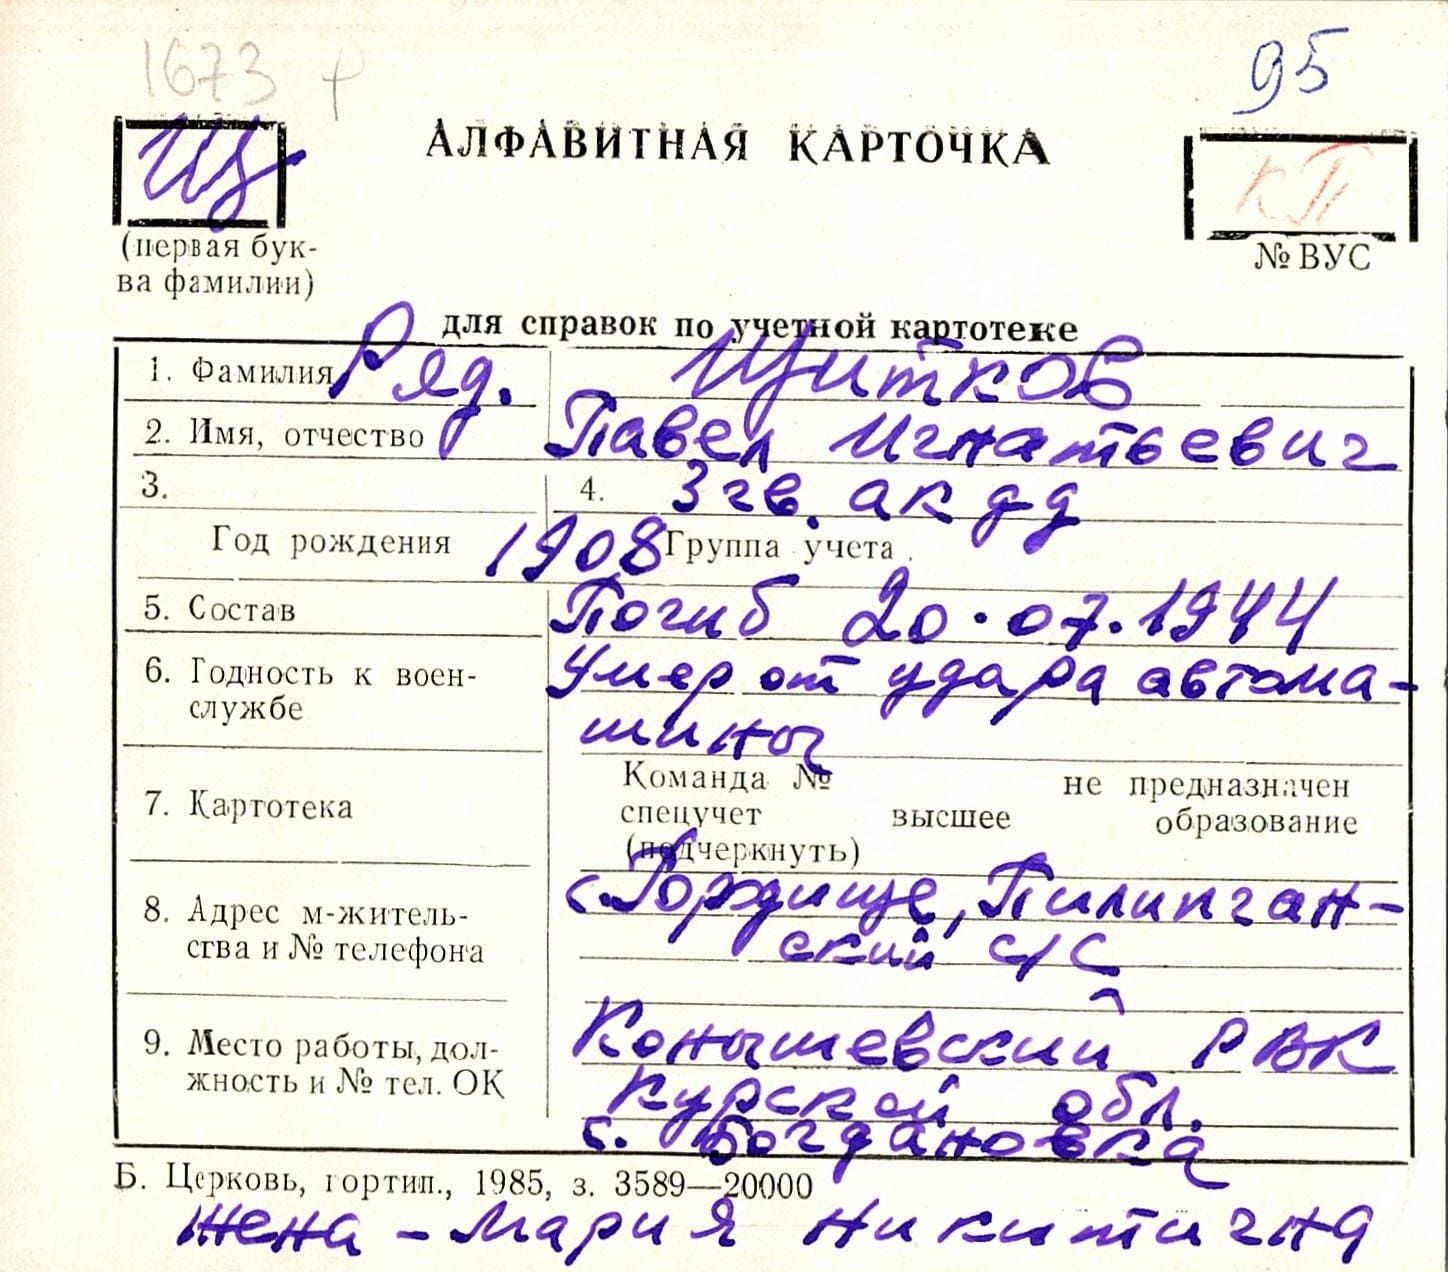 1673 ф
95
Щ
АЛФАВИТНАЯ КАРТОЧКА
КП
(первая бук-
ва фамилии)
№ ВУС
для справок по учетной картотеке
1. Фамилия Ряд. Щитков
2. Имя, отчество Павел Игнатьевич
3. 4. 3 гв. ак дд
Год рождения 1908 Группа учета
5. Состав Погиб 20.07.1944
6. Годность к воен- Умер от удара автома-
службе шины
Команда № не предназначен
7. Картотека спецучет высшее образование
(подчеркнуть)
8. Адрес м-житель- с. Гордище, Пилипчан-
ства и № телефона ский с/с
9. Место работы, дол- Конышевский РВК
жность и № тел. ОК Курской обл.
с. Богдановка
Б. Церковь, гортип., 1985, з. 3589—20000
жена - Мария Никитична